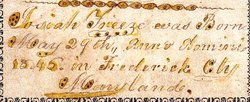 Josiah Freeze was Born
May 29th, Anno Domini
1845 in Frederick Cty
Maryland.